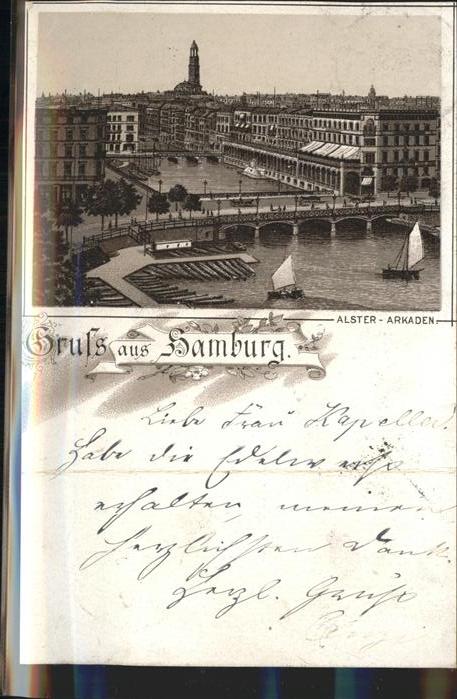 ALSTER - ARKADEN
Gruſs aus Hamburg.
Liebe Frau Kapeller!
Habe die Edelweiße
erhalten, meinen
herzlichsten Dank.
Herzl. Grüße